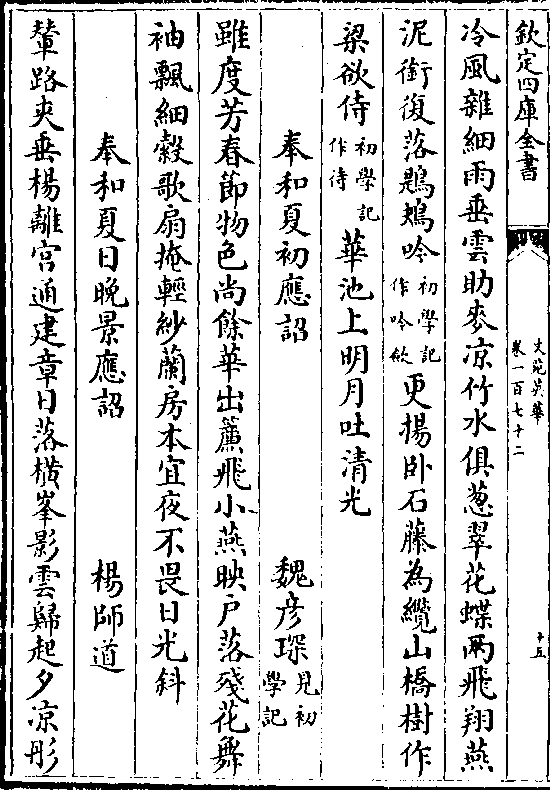 欽定四庫全書
文苑英華
卷一百七十二
十五
冷風雜細雨垂雲助麥凉竹水俱葱翠花蝶兩飛翔燕
泥銜復落鶗鴂吟初學記作吟欲更揚卧石藤為纜山橋樹作
梁欲侍初學記作待華池上明月吐清光
奉和夏初應詔 魏彦琛見初學記
雖度芳春節物色尚餘華出簾飛小燕映户落殘花舞
袖飄細縠歌扇掩輕紗蘭房本宜夜不畏日光斜
奉和夏日晚景應詔 楊師道
輦路夾垂楊離宫通建章日落横峯影雲歸起夕凉彤